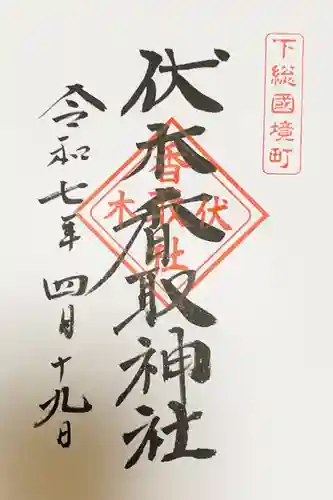 下総國境町
伏木香取神社
香取社
伏木
令和七年四月十九日